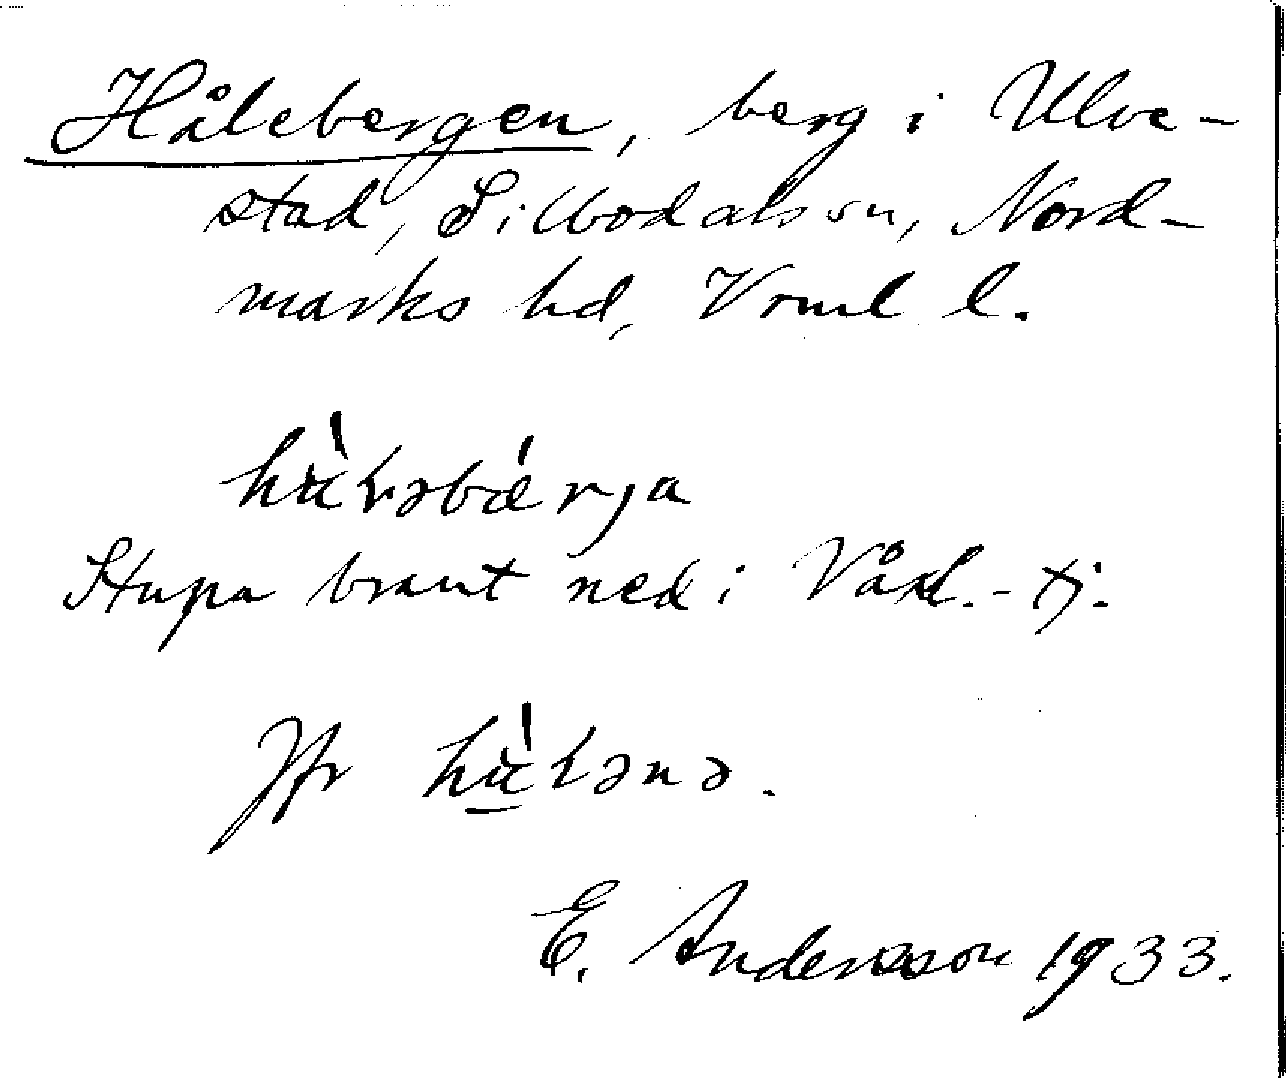 Hålebergen, berg i Ulve-
stad, Sillbodals sn, Nord-
marks hd, Vrml l.
Stupa brant ned i Våxl.-tj.
Jfr
E. Andersson 1933.